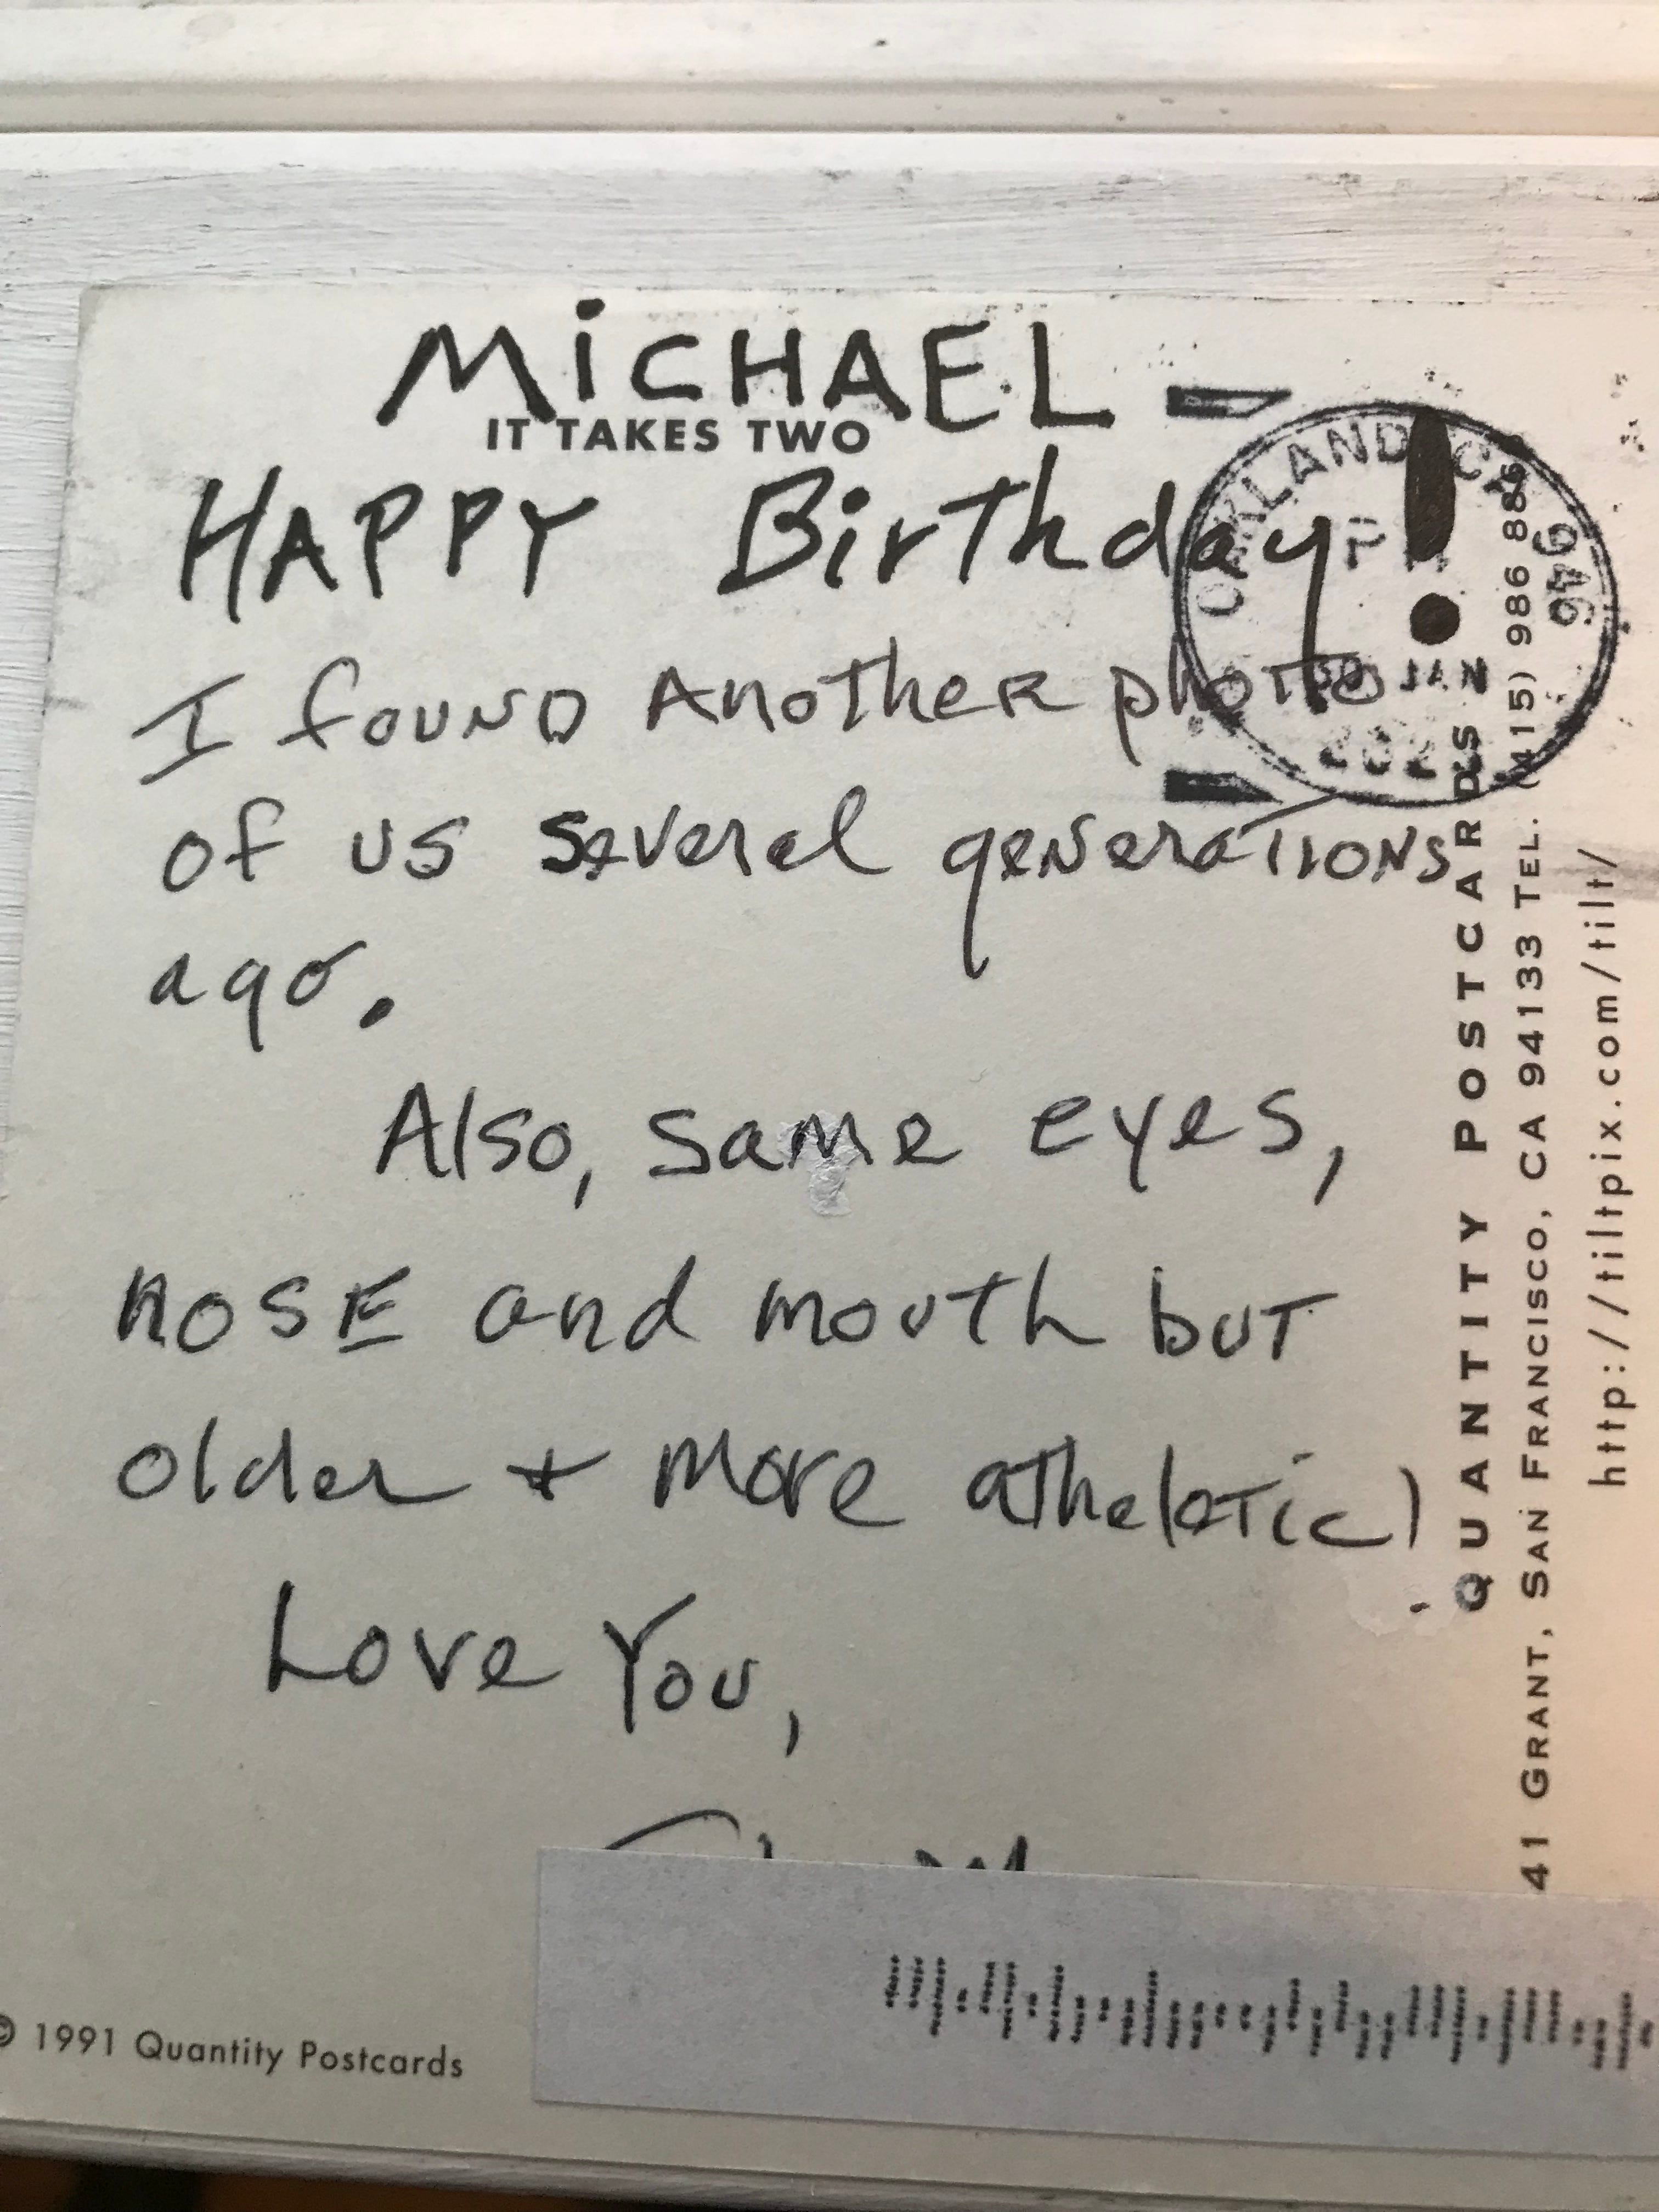 MiCHAEL -
IT TAKES TWO
HAPPY Birthday!
I found Another photo
of us several generations
ago.
Also, same eyes,
nose and mouth but
older + more atheletic!
Love You,
OAKLAND CA 946
30 JAN
QUANTITY POSTCARDS
41 GRANT, SAN FRANCISCO, CA 94133 TEL. (415) 986 8866
http://tiltpix.com/tilt/
© 1991 Quantity Postcards